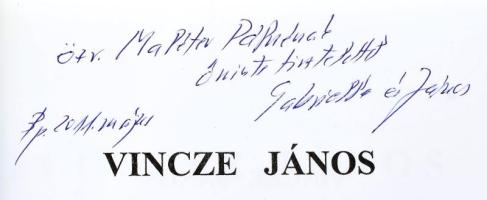 özv. Maléter Pálnénak
őszinte tisztelettel
Gabriella és János
Bp. 2011. május
VINCZE JÁNOS